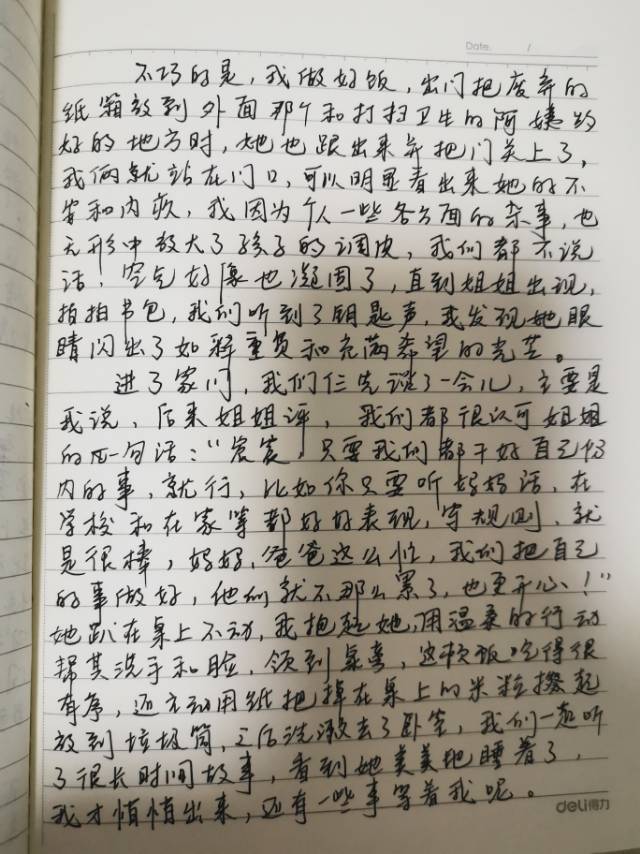 Date. /
不巧的是，我做好饭，出门把废弃的
纸箱放到外面那个和打扫卫生的阿姨约
好的地方时，她也跟出来并把门关上了，
我俩就站在门口，可以明显看出来她的不
安和内疚，我因为个人一些各方面的杂事，也
无形中放大了孩子的调皮，我们都不说
话，空气好像也凝固了，直到姐姐出现，
拍拍书包，我们听到了钥匙声，我发现她眼
睛闪出了如释重负和充满希望的光芒。
进了家门，我们仨先谈了一会儿，主要是
我说，后来姐姐评，我们都很认可姐姐
的一句话：“ 只要我们都干好自己份
内的事，就行，比如你只要听妈妈话，在
学校和在家等都好好表现，守规则，就
是很棒，妈妈，爸爸这么忙，我们把自己
的事做好，他们就不那么累了，也更开心！”
她趴在桌上不动，我抱起她，用温柔的行动
帮其洗手和脸，领到桌旁，这顿饭吃得很
有序，还主动用纸把掉在桌上的米粒拨起
放到垃圾筒，之后洗漱去了卧室，我们一起听
了很长时间故事，看到她美美地睡着了，
我才悄悄出来，还有一些事等着我呢。
deli得力